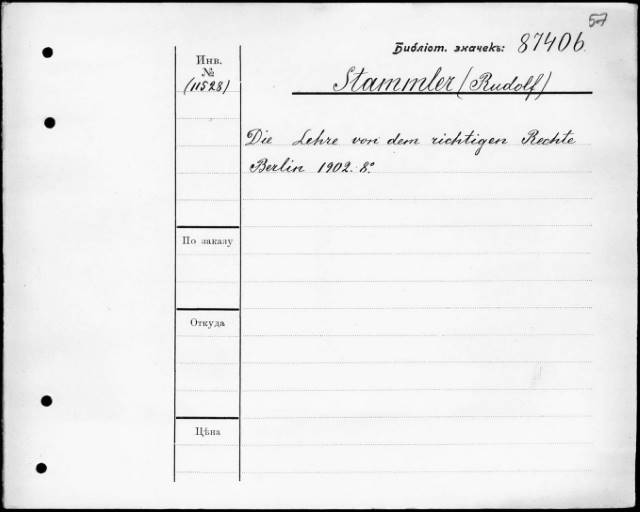 57
Библіот. значекъ: 87406
Инв.
№
(11528)
Stammler (Rudolf)
Die Lehre von dem richtigen Rechte
Berlin 1902. 8º
По заказу
Откуда
Цѣна